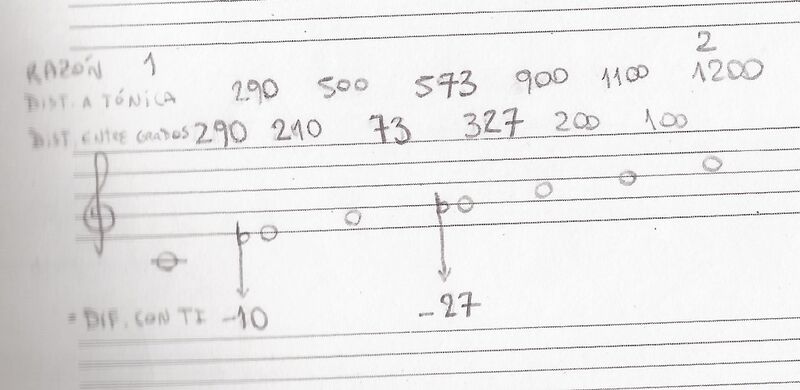 RAZÓN 1 2
DIST. A TÓNICA 290 500 573 900 1100 1200
DIST. ENTRE GRADOS 290 210 73 327 200 100
= DIF. CON TI -10 -27